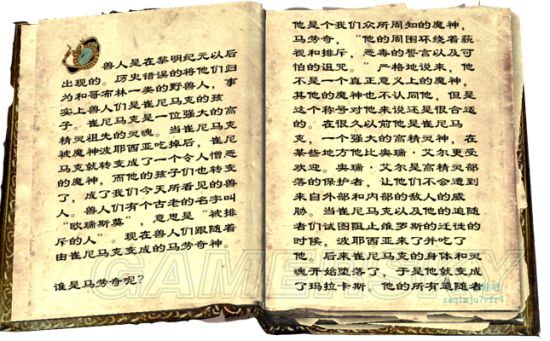 兽人是在黎明纪元以后
出现的。历史错误的将他们归
为和哥布林一类的野兽人，事
实上兽人们是崔尼马克的孩
子。崔尼马克是一位强大的高
精灵祖先的灵魂。当崔尼马克
被魔神波耶西亚吃掉后，崔尼
马克就转变成了一个令人憎恶
的魔神，而他的孩子们也转变
了，成了我们今天所看见的兽
人。兽人们有个古老的名字叫
“欧瑞斯莫”，意思是“被排
斥的人”。现在兽人们跟随着
由崔尼马克变成的马劳奇神。
谁是马劳奇呢？
他是个我们众所周知的魔神，
马劳奇，“他的周围环绕着藐
视和排斥，恶毒的誓言以及可
怕的诅咒。”严格地说来，他
不是一个真正意义上的魔神，
其他的魔神也不认同他，但是
这个称号对他来说还是很合适
的。在很久以前他是崔尼马
克，一个强大的高精灵神，在
某些地方他比奥瑞·艾尔更受
欢迎。奥瑞·艾尔是高精灵部
落的保护者，让他们不会遭到
来自外部和内部的敌人的威
胁。当崔尼马克以及他的追随
者们试图阻止维罗斯的迁徙的
时候，波耶西亚来了并吃了
他。后来崔尼马克的身体和灵
魂开始堕落了，于是他就变成
了玛拉卡斯。他的所有追随者
GAMERSKY
zaq1mju7vfr4